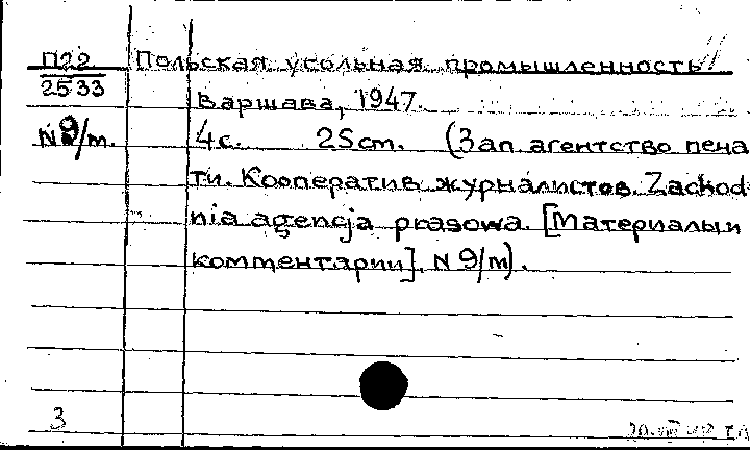 П22
2533
N9/m.
Польская угольная промышленность
Варшава, 1947.
4с. 25cm. (Зап. агентство печа
ти. Кооператив журналистов. Zachod
nia agencja prasowa. [Материалы и
комментарии]. N 9/m).
3